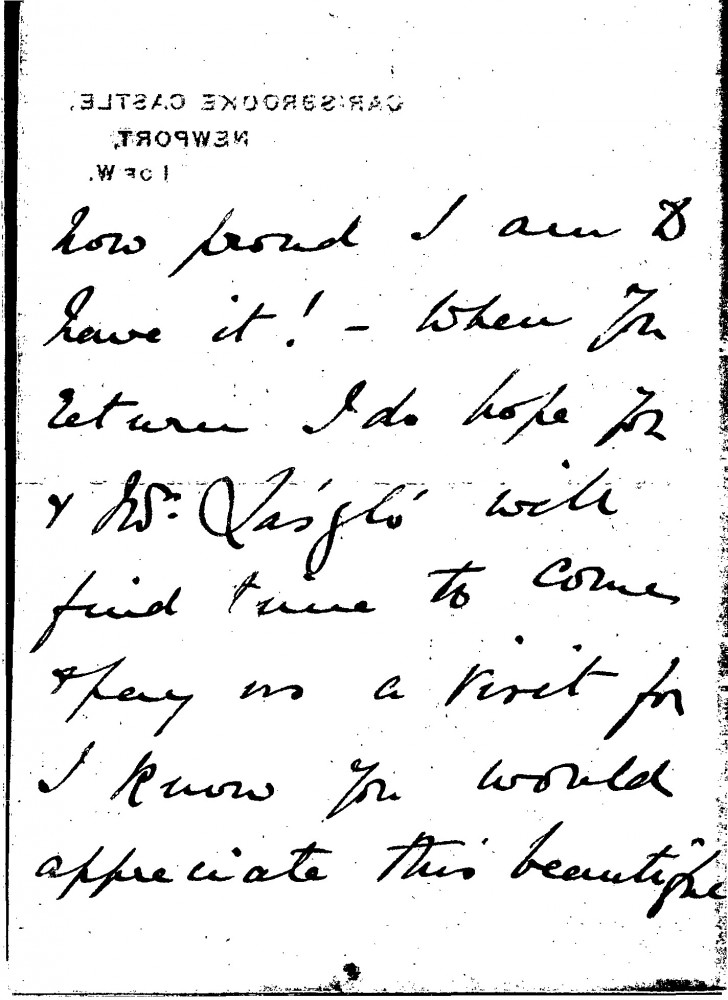 CARISBROOKE CASTLE,
NEWPORT,
I OF W.
how proud I am to
have it! – When you
return I do hope you
& Mrs. László will
find time to come
& pay us a visit for
I know you would
appreciate this beautiful